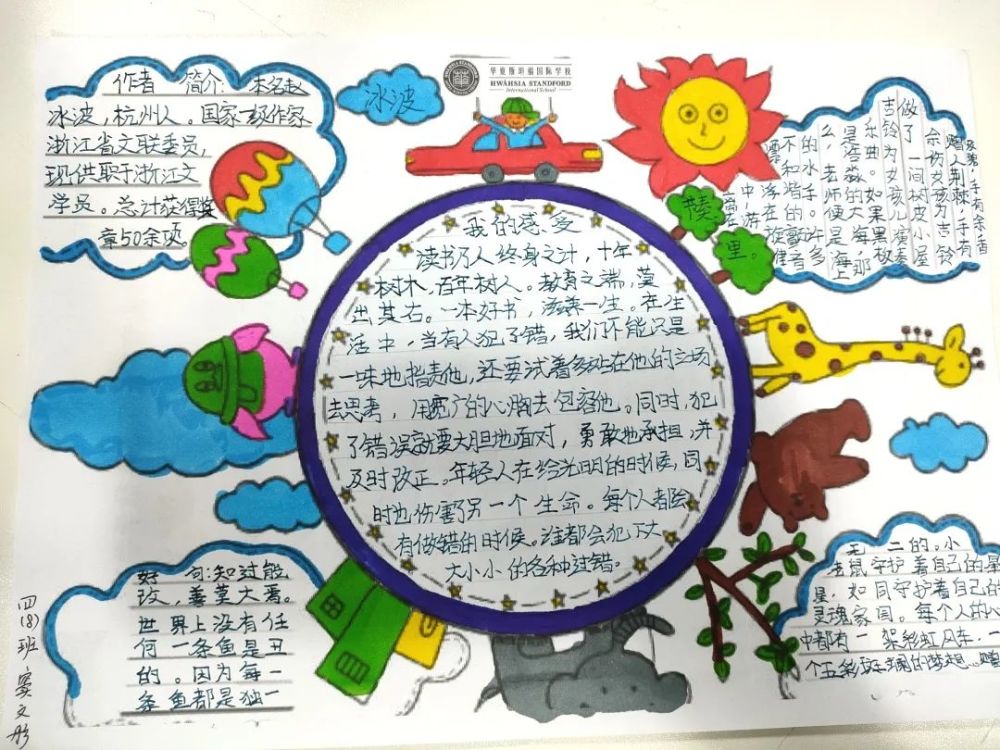 作者 简介: 本名赵
冰波,杭州人。国家一级作家
浙江省文联委员,
现供职于浙江文
学员。总计获得奖
章50余项。
冰波
华夏斯坦福国际学校
HWAHSIA STANDFORD
International School
做了一间树皮小屋
吉铃为女孩儿演奏
乐曲。如果黑板
是浩淼的大海,那
么,去师便是海上
的水手。许多
不和谐的
中浮在
里。
我的感受
读书乃人终身之计,十年
树木,百年树人。教育之端,莫
出其右。一本好书,滋养一生。在生
活中,当有人犯了错,我们不能只是
一味地指责他,还要试着多站在他的立场
去思考,用宽广的心胸去包容他。同时,犯
了错误就要大胆地面对,勇敢地承担,并
及时改正。年轻人在给光明的时候,同
时也伤害了另一个生命。每个人都会
有做错的时候。谁都会犯下大
大小小的各种过错。
好句:知过能
改,善莫大焉。
世界上没有任
何一条鱼是丑
的。因为每一
条鱼都是独一
无二的。小
鼠守护着自己的星
星,如同守护着自己的
灵魂家园。每个人的心
中都有一架彩虹风车,一
个五彩斑斓的梦想
四(8)班 窦文彤